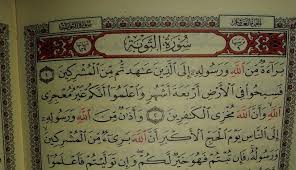 الجزء العاشر
سورة التوبة
سُورَةُ التَّوْبَةِ
بَرَآءَةٌ مِّنَ ٱللَّهِ وَرَسُولِهِۦٓ إِلَى ٱلَّذِينَ عَٰهَدتُّم مِّنَ ٱلْمُشْرِكِينَ ١
فَسِيحُوا۟ فِى ٱلْأَرْضِ أَرْبَعَةَ أَشْهُرٍ وَٱعْلَمُوٓا۟ أَنَّكُمْ غَيْرُ مُعْجِزِى
ٱللَّهِ وَأَنَّ ٱللَّهَ مُخْزِى ٱلْكَٰفِرِينَ ٢ وَأَذَٰنٌ مِّنَ ٱللَّهِ وَرَسُولِهِۦٓ
إِلَى ٱلنَّاسِ يَوْمَ ٱلْحَجِّ ٱلْأَكْبَرِ أَنَّ ٱللَّهَ بَرِىٓءٌ مِّنَ ٱلْمُشْرِكِينَ
وَرَسُولُهُۥ فَإِن تُبْتُمْ فَهُوَ خَيْرٌ لَّكُمْ وَإِن تَوَلَّيْتُمْ فَٱعْلَمُوٓا۟